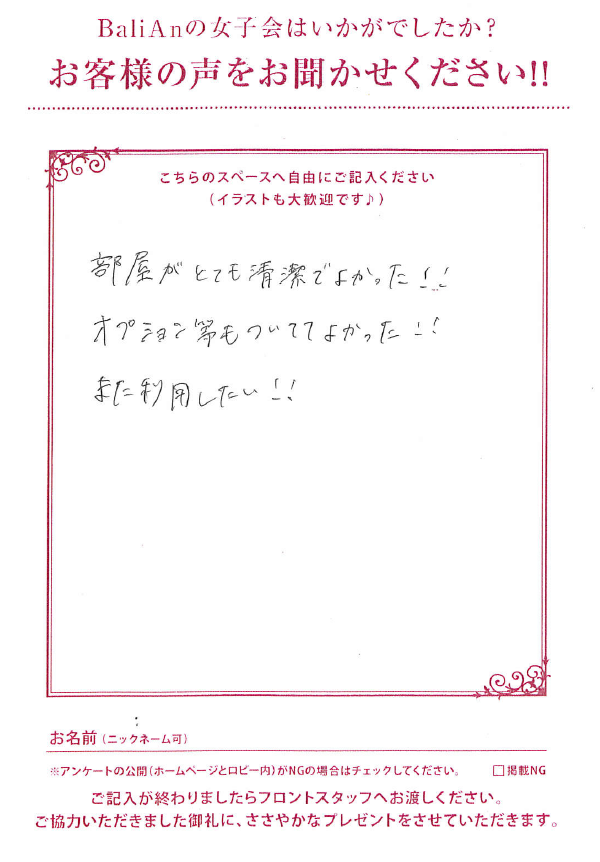 BaliAnの女子会はいかがでしたか?
お客様の声をお聞かせください!!
こちらのスペースへ自由にご記入ください
(イラストも大歓迎です♪)
部屋がとても清潔でよかった!!
オプション等もついててよかった!!
また利用したい!!
お名前(ニックネーム可)
※アンケートの公開(ホームページとロビー内)がNGの場合はチェックしてください。 □掲載NG
ご記入が終わりましたらフロントスタッフへお渡しください。
ご協力いただきました御礼に、ささやかなプレゼントをさせていただきます。